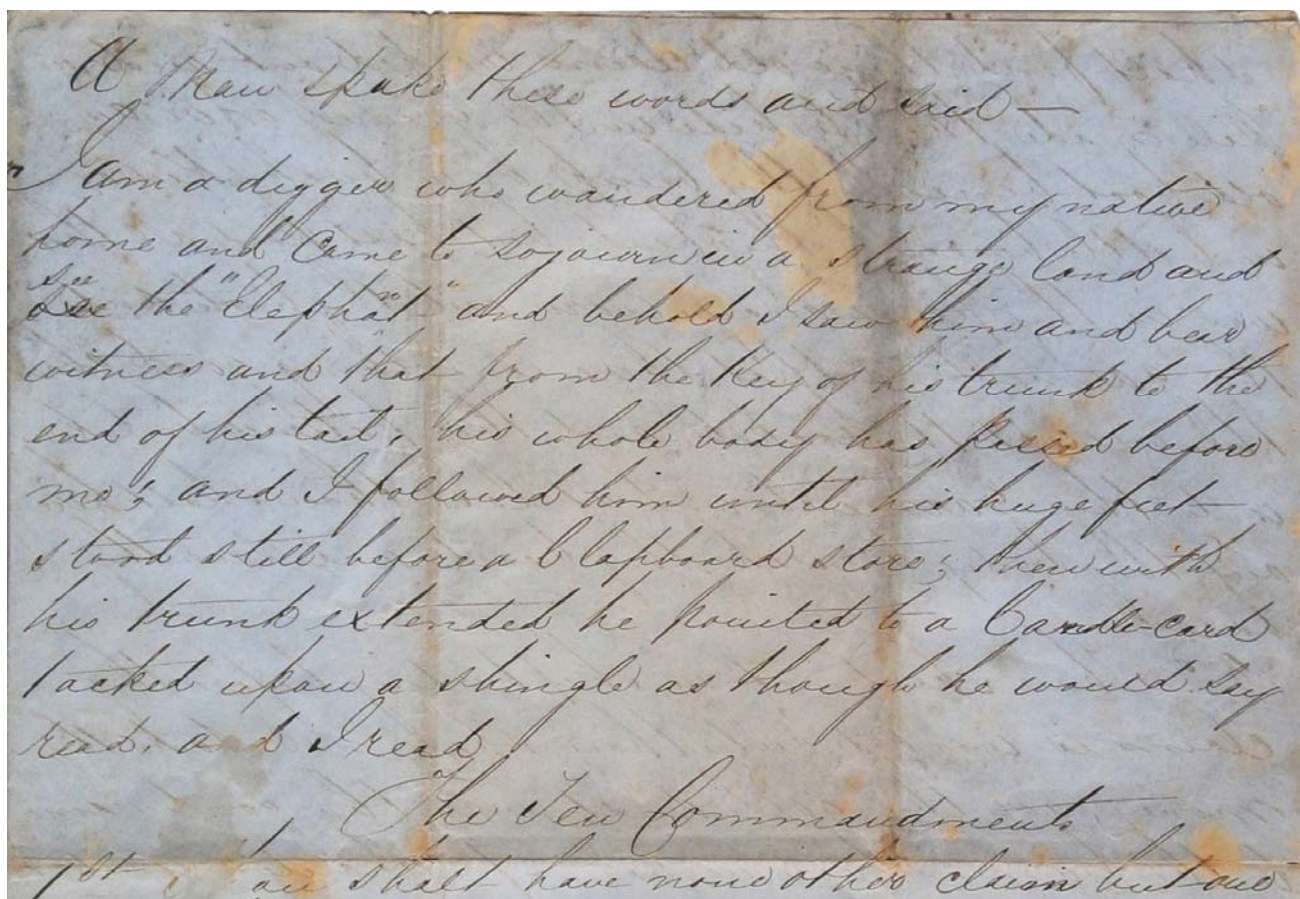 A Man spake these words and said —
I am a digger who wandered from my native
home and Came to sojourn in a strange land and
see the "Elephant" and behold I saw him and bear
witness and that from the Key of his trunk to the
end of his tail, his whole body has passed before
me; and I followed him until his huge feet
stood still before a Clapboard store; then with
his trunk extended he pointed to a Candle-card
tacked upon a shingle as though he would say
read. and I read
The Ten Commandments
1st shalt have none other claim but one